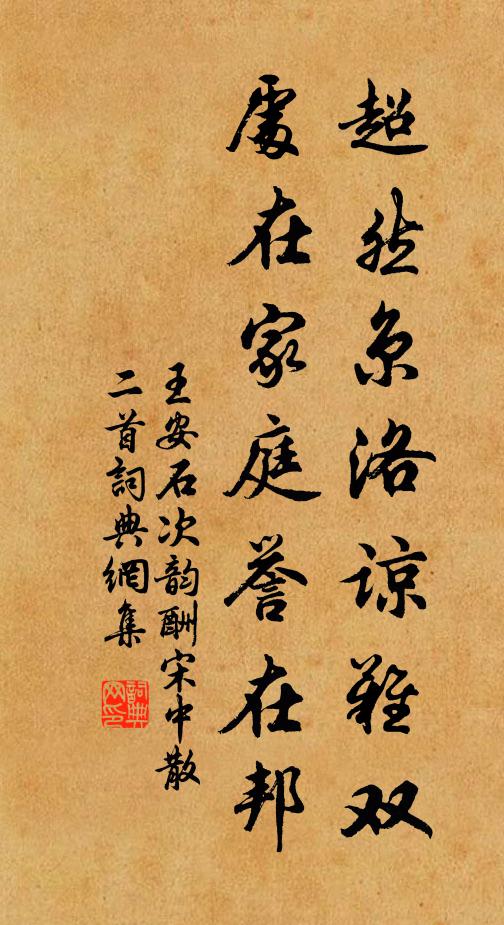 超然京洛谅难双
處在家庭誉在邦
王安石次韵酬宋中散
二首詞典網集
詞典网印